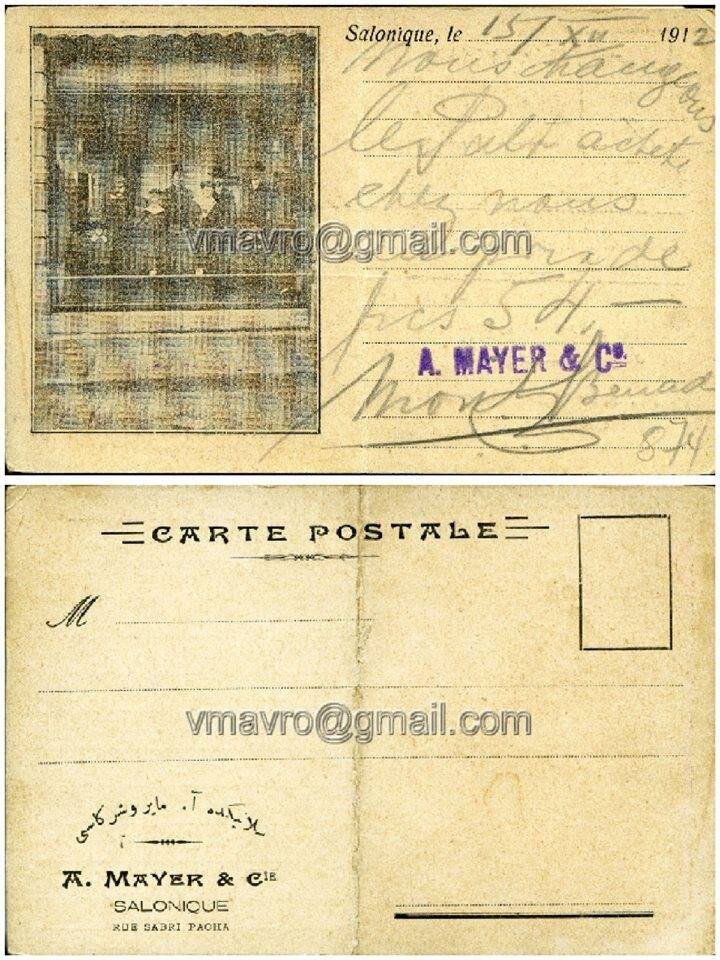 Salonique, le 15/XII 1912
Nous changeons
le Palt acheté
chez nous
de
prs 54,—
A. MAYER & Co.
Mon Benad
874
vmavro@gmail.com
CARTE POSTALE
M
vmavro@gmail.com
سلانیكده آ. مایر وشركاسی
A. MAYER & CIE
SALONIQUE
RUE SABRI PACHA